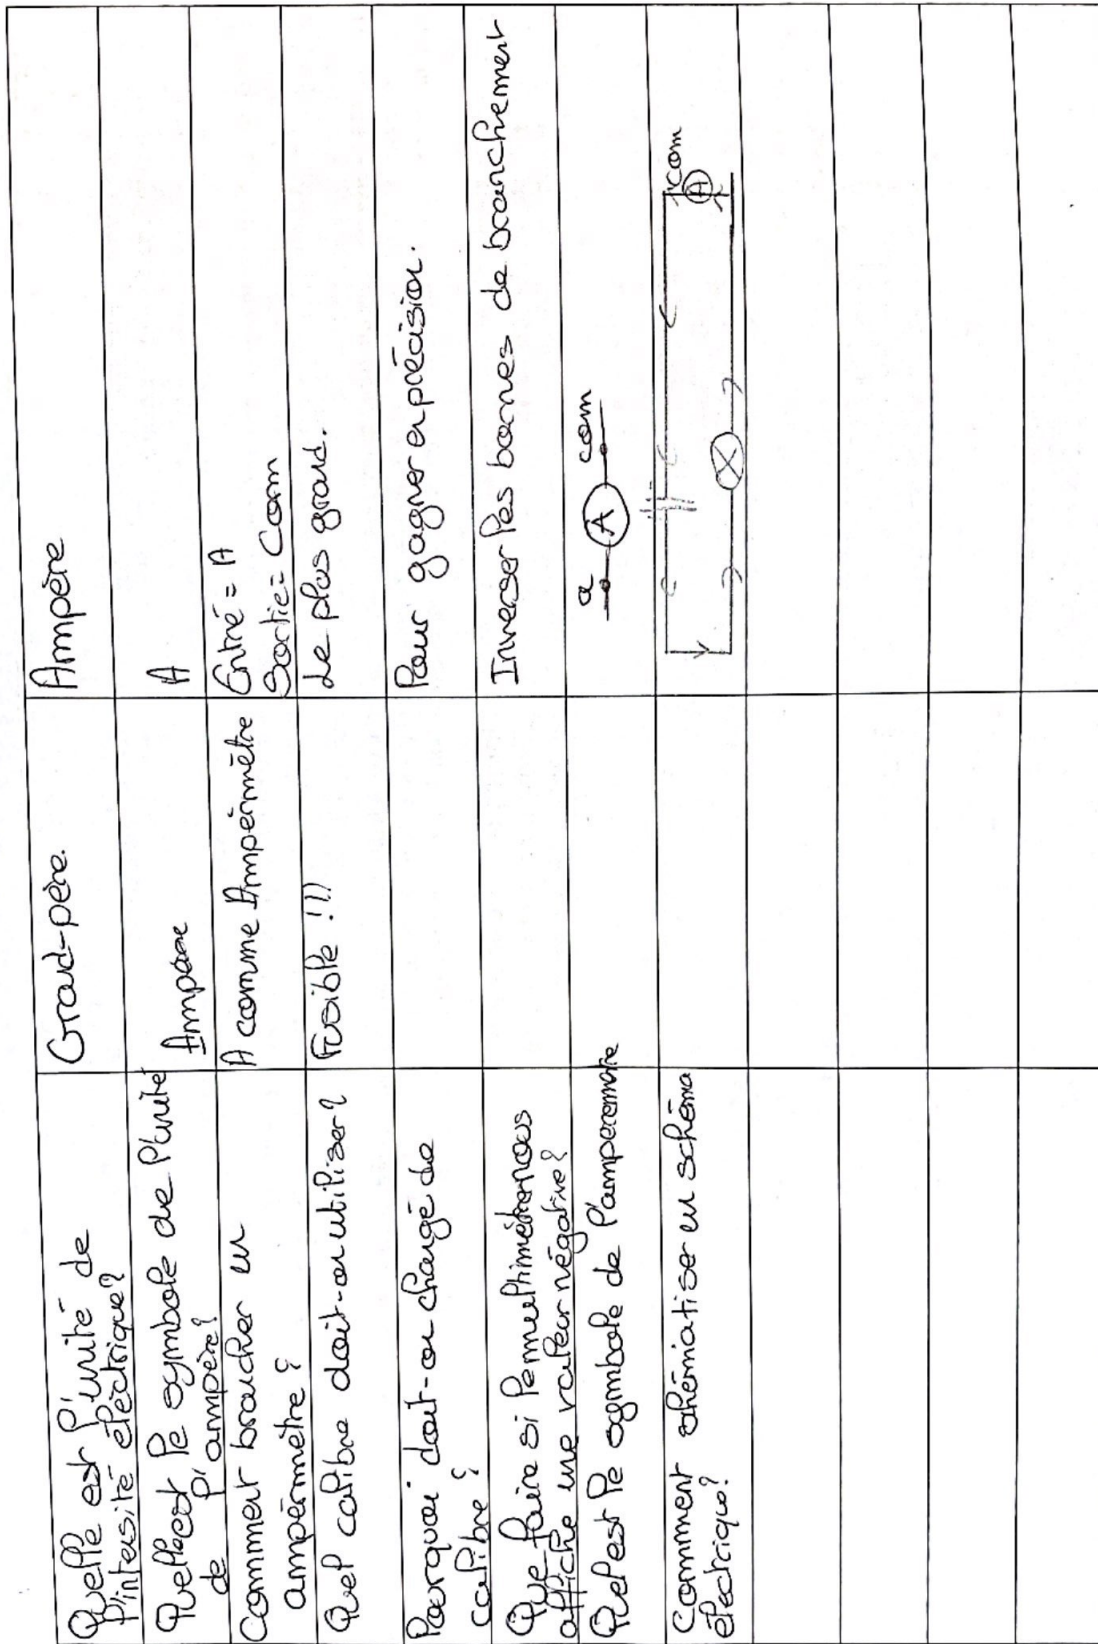 Quelle est l'unité de
l'intensité électrique?
Grand-père.
Ampère
Quelle est le symbole de l'unité
de l'ampère?
Ampère
A
Comment brancher un
ampèrmètre?
A comme Ampèrmètre
Entré = A
Sortie = Com
Quel calibre doit-on utiliser?
Fusible !!!
Le plus grand.
Pourquoi doit-on changé de
calibre?
Pour gagner en précision.
Que faire si le multimètre nous
affiche une valeur négative?
Inverser les bornes de branchement
Quel est le symbole de l'amperemetre
a A com
Comment schématiser un schéma
électrique?
com
A